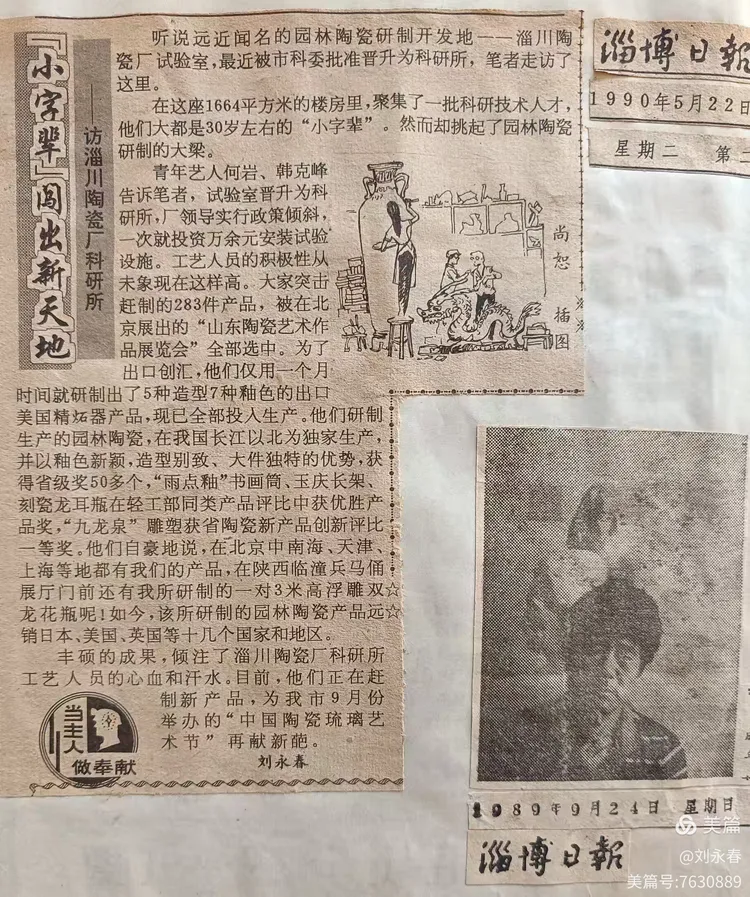 『小字辈』闯出新天地
——访淄川陶瓷厂科研所
听说远近闻名的园林陶瓷研制开发地——淄川陶
瓷厂试验室，最近被市科委批准晋升为科研所，笔者走访了
这里。
在这座1664平方米的楼房里，聚集了一批科研技术人才，
他们大都是30岁左右的“小字辈”。然而却挑起了园林陶瓷
研制的大梁。
青年艺人何岩、韩克峰
告诉笔者，试验室晋升为科
研所，厂领导实行政策倾斜，
一次就投资万余元安装试验
设施。工艺人员的积极性从
未象现在这样高。大家突击
赶制的283件产品，被在北
京展出的“山东陶瓷艺术作
品展览会”全部选中。为了
出口创汇，他们仅用一个月
时间就研制出了5种造型7种釉色的出口
美国精炻器产品，现已全部投入生产。他们研制
生产的园林陶瓷，在我国长江以北为独家生产，
并以釉色新颖，造型别致、大件独特的优势，获
得省级奖50多个，“雨点釉”书画筒、玉庆长架、
刻瓷龙耳瓶在轻工部同类产品评比中获优胜产
品奖，“九龙泉”雕塑获省陶瓷新产品创新评比
一等奖。他们自豪地说，在北京中南海、天津、
上海等地都有我们的产品，在陕西临潼兵马俑
展厅门前还有我所研制的一对3米高浮雕双
龙花瓶呢！如今，该所研制的园林陶瓷产品远
销日本、美国、英国等十几个国家和地区。
丰硕的成果，倾注了淄川陶瓷厂科研所
工艺人员的心血和汗水。目前，他们正在赶
制新产品，为我市9月份
举办的“中国陶瓷琉璃艺
术节”再献新葩。
刘永春
当主人
做奉献
尚恕 插图
淄博日报
1990年5月22日
星期二 第二
1989年9月24日 星期日
淄博日报
美篇
@刘永春
美篇号:7630889